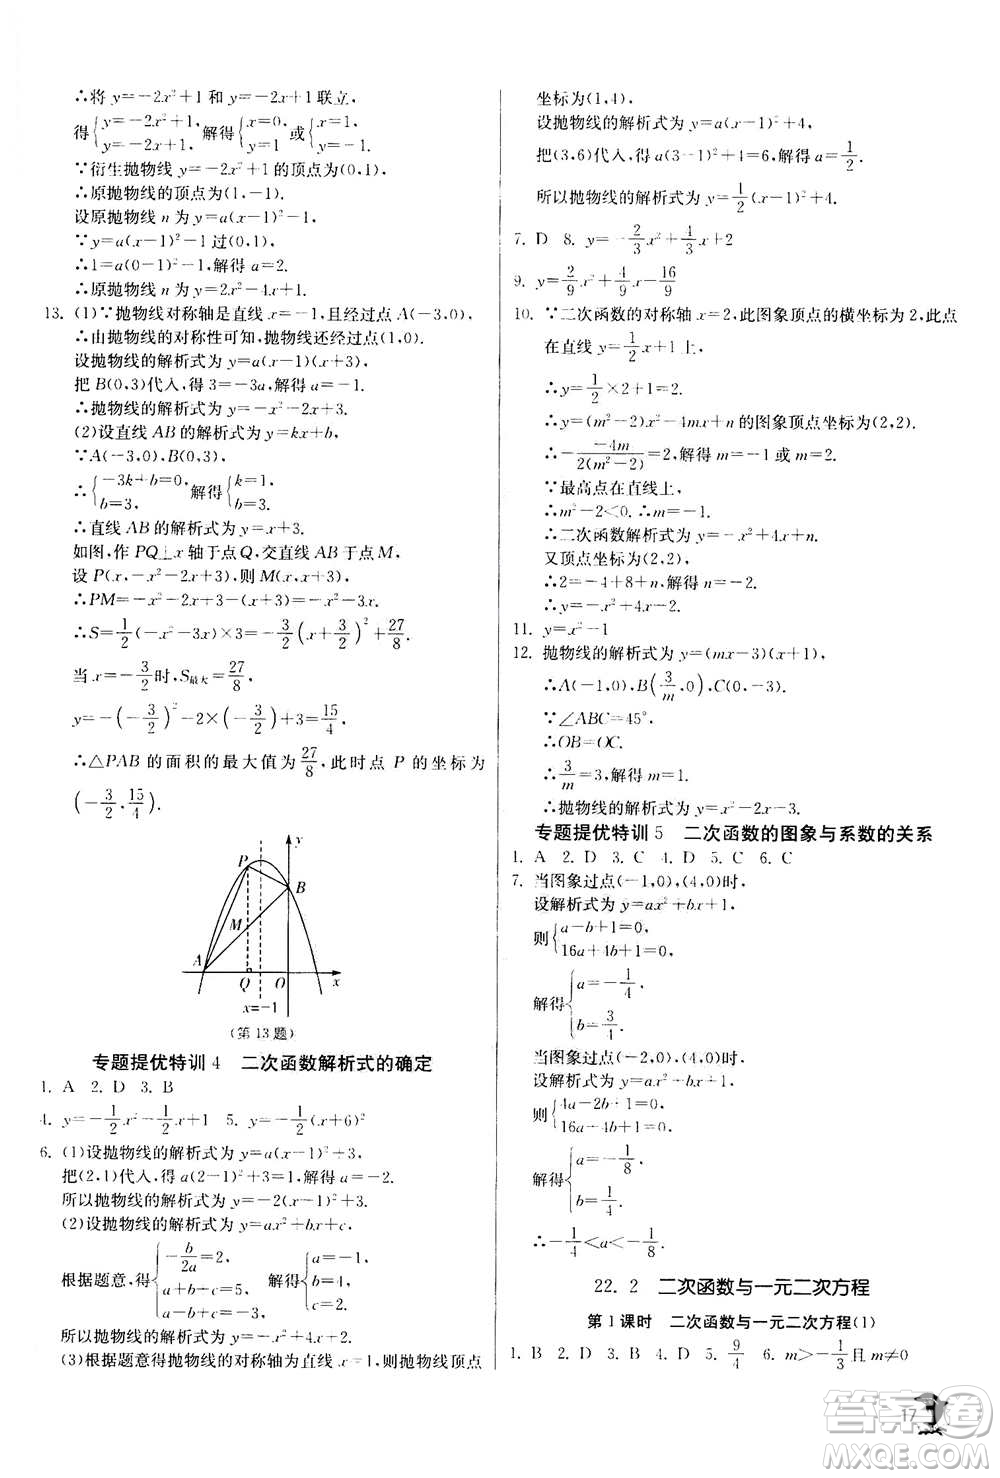 ∴将 y=−2x²+1 和 y=−2x+1联立,
得{y=−2x²+1, y=−2x+1, 解得{x=0, y=1 或{x=1, y=−1.
∵衍生抛物线 y=−2x²+1 的顶点为(0,1),
∴原抛物线的顶点为(1,−1).
设原抛物线 n 为 y=a(x−1)²−1,
∵y=a(x−1)²−1 过(0,1),
∴1=a(0−1)²−1,解得 a=2.
∴原抛物线为 y=2x²−4x+1.
13. (1)∵抛物线对称轴是直线 x=−1,且经过点 A(−3,0),
∴由抛物线的对称性可知,抛物线还经过点(1,0).
设抛物线的解析式为 y=a(x−1)(x+3).
把 B(0,3)代入,得 3=−3a,解得 a=−1.
∴抛物线的解析式为 y=−x²−2x+3.
(2)设直线 AB 的解析式为 y=kx+b.
∵A(−3,0),B(0,3),
∴{−3k+b=0, b=3. 解得{k=1, b=3.
∴直线 AB 的解析式为 y=x+3.
如图,作 PQ⊥x 轴于点 Q,交直线 AB 于点 M,
设 P(x,−x²−2x+3),则 M(x,x+3),
∴PM=−x²−2x+3−(x+3)=−x²−3x.
∴S=1/2(−x²−3x)×3=−3/2(x+3/2)²+27/8.
当 x=−3/2时,S最大=27/8,
y=−(−3/2)²−2×(−3/2)+3=15/4.
∴△PAB 的面积的最大值为27/8,此时点 P 的坐标为
(−3/2,15/4).
y
P
B
M
A
Q O x
x=−1
(第 13题)
专题提优特训 4 二次函数解析式的确定
1. A 2. D 3. B
4. y=−1/2x²−1/2x+1 5. y=−1/3(x+6)²
6. (1)设抛物线的解析式为 y=a(x−1)²+3,
把(2,1)代入,得 a(2−1)²+3=1,解得 a=−2.
所以抛物线的解析式为 y=−2(x−1)²+3.
(2)设抛物线的解析式为 y=ax²+bx+c,
根据题意,得{−b/2a=2, a+b+c=0, c=−5. 解得{a=−1, b=4, c=−5.
所以抛物线的解析式为 y=−x²+4x−5.
(3)根据题意得抛物线的对称轴为直线 x=1,抛物线顶点
坐标为(1,4),
设抛物线的解析式为 y=a(x−1)²+4,
把(3,6)代入,得 a(3−1)²+4=6,解得 a=1/2.
所以抛物线的解析式为 y=1/2(x−1)²+4.
7. D 8. y=−2/3x²+1/3x+2
9. y=2/9x²+4/9x−16/9
10. ∵二次函数的对称轴 x=2,此图象顶点的横坐标为 2,此点
在直线 y=1/2x+1 上.
∴y=1/2×2+1=2.
∴y=(m²−2)x²−4mx+n 的图象顶点坐标为(2,2).
∴−−4m/2(m²−2)=2,解得 m=−1 或 m=2.
∵最高点在直线上,
∴m²−2<0. ∴m=−1.
∴二次函数解析式为 y=−x²+4x+n.
又顶点坐标为(2,2),
∴2=−4+8+n,解得 n=−2.
∴y=−x²+4x−2.
11. y=x²−1
12. 抛物线的解析式为 y=(mx−3)(x+1),
∴A(−1,0),B(3/m,0),C(0,−3).
∵∠ABC=45°,
∴OB=OC.
∴3/m=3,解得 m=1.
∴抛物线的解析式为 y=x²−2x−3.
专题提优特训 5 二次函数的图象与系数的关系
1. A 2. D 3. C 4. D 5. C 6. C
7. 当图象过点(−1,0),(4,0)时,
设解析式为 y=ax²+bx+1,
则{a−b+1=0, 16a+4b+1=0,
解得{a=−1/4, b=3/4.
当图象过点(−2,0),(4,0)时,
设解析式为 y=ax²+bx+1,
则{4a−2b+1=0, 16a+4b+1=0,
解得{a=−1/8, b=1/4.
∴−1/4<a<−1/8.
22. 2 二次函数与一元二次方程
第 1 课时 二次函数与一元二次方程(1)
1. B 2. D 3. D 4. D 5. 9/4 6. m>−1/3且 m≠0
17
答案圈
MXQE.COM